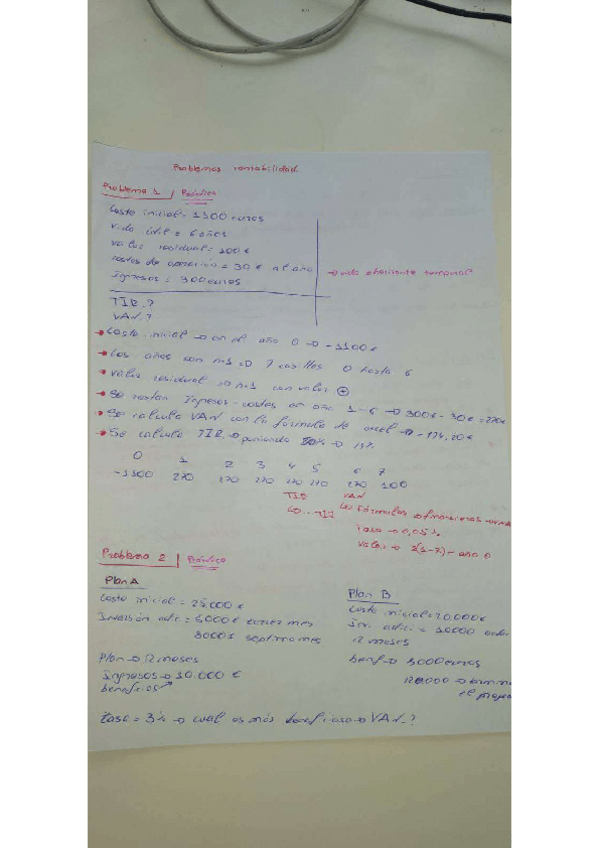 Problemas rentabilidad.
Problema 1 | Práctica
Costo inicial = 1100 euros
Vida útil = 6 años
Valor residual = 100 €
costos de operación = 30 € al año
Ingresos = 300 euros
→ vida horizonte temporal
TIR ?
VAN ?
→ Costo inicial → en el año 0 → -1100 €
→ Los años son n+1 → 7 casillas 0 hasta 6
→ Valor residual → n+1 con valor +
→ Se restan Ingresos - costes en año 1-6 → 300€ - 30€ = 270€
→ Se calcula VAN con la fórmula de excel →
→ Se calcula TIR → poniendo
0 1 2 3 4 5 6 7
-1100 270 270 270 270 270 270 100
TIR VAN
Fórmulas → financieras
Tasa → 0,05%
Valor → - año 0
Problema 2 | Práctica
Plan A
Costo inicial = 25.000 €
Inversión adic. = 5000 € tercer mes
8000€ septimo mes
Plan → 12 meses
Ingresos → 10.000 €
beneficios
Plan B
Costo inicial = 20.000 €
Inv. adic. = 10000
12 meses
benf → 5000 euros
→
el
Tasa = 3% → cual es más beneficioso → VAN ?